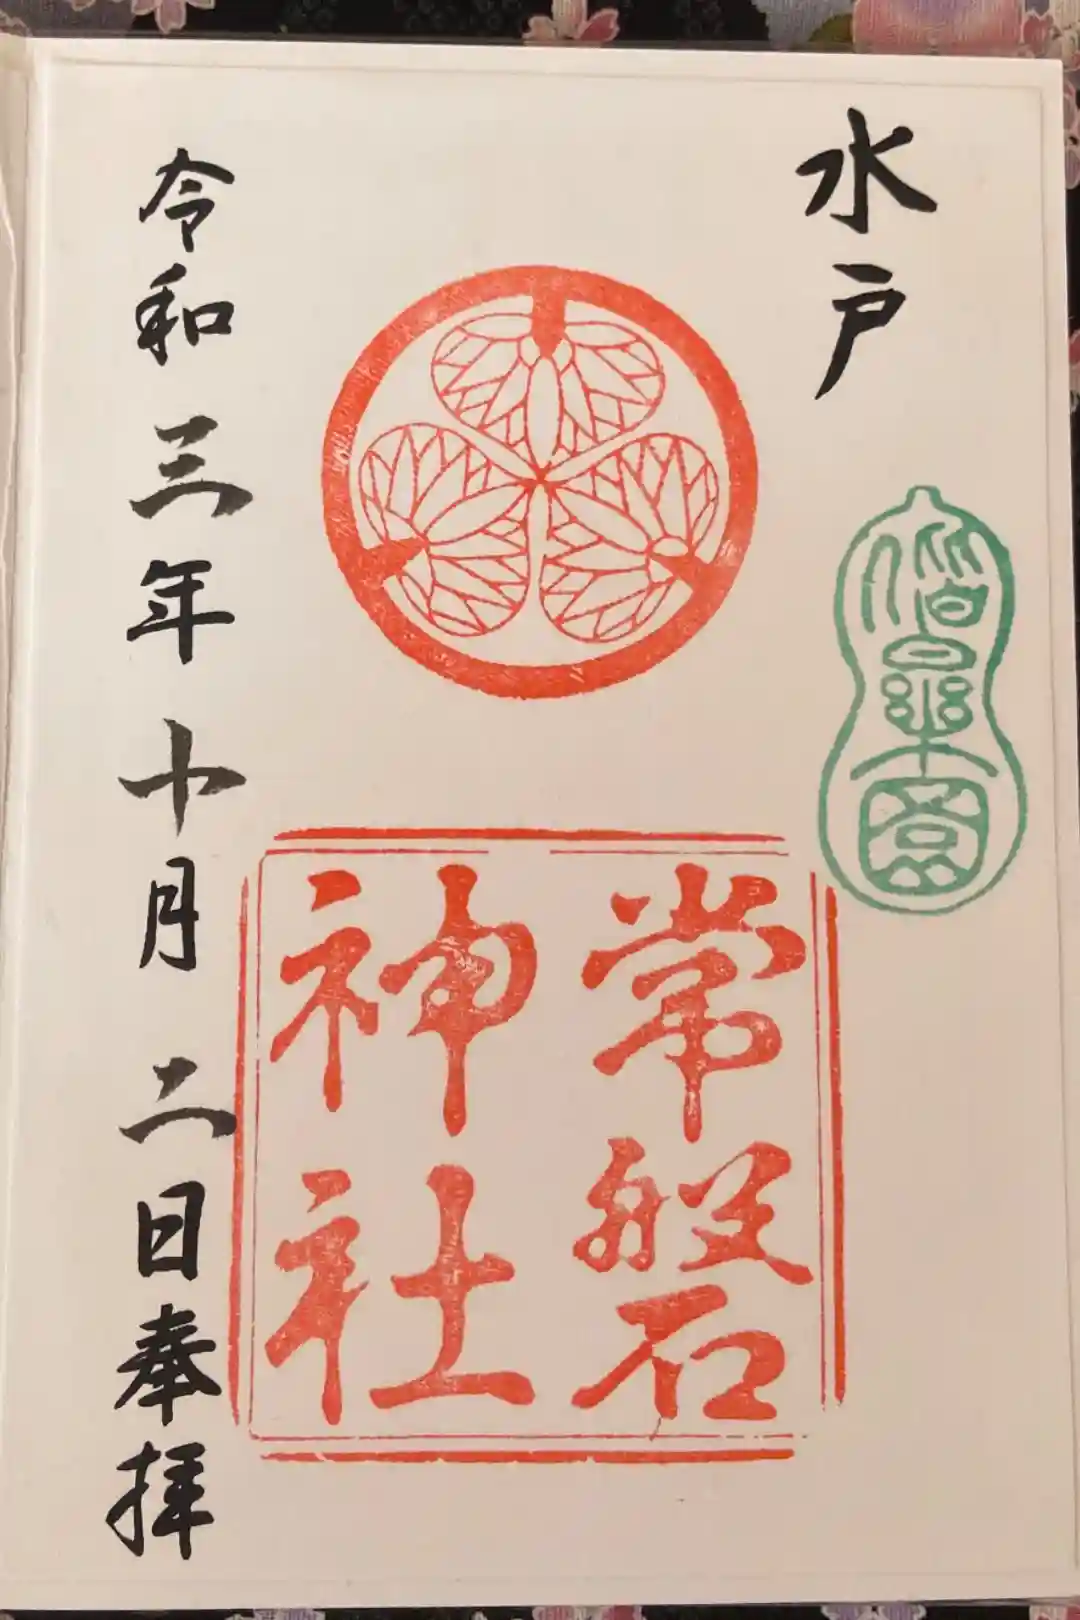 水戸
偕楽園
常磐
神社
令和三年十月二日奉拝